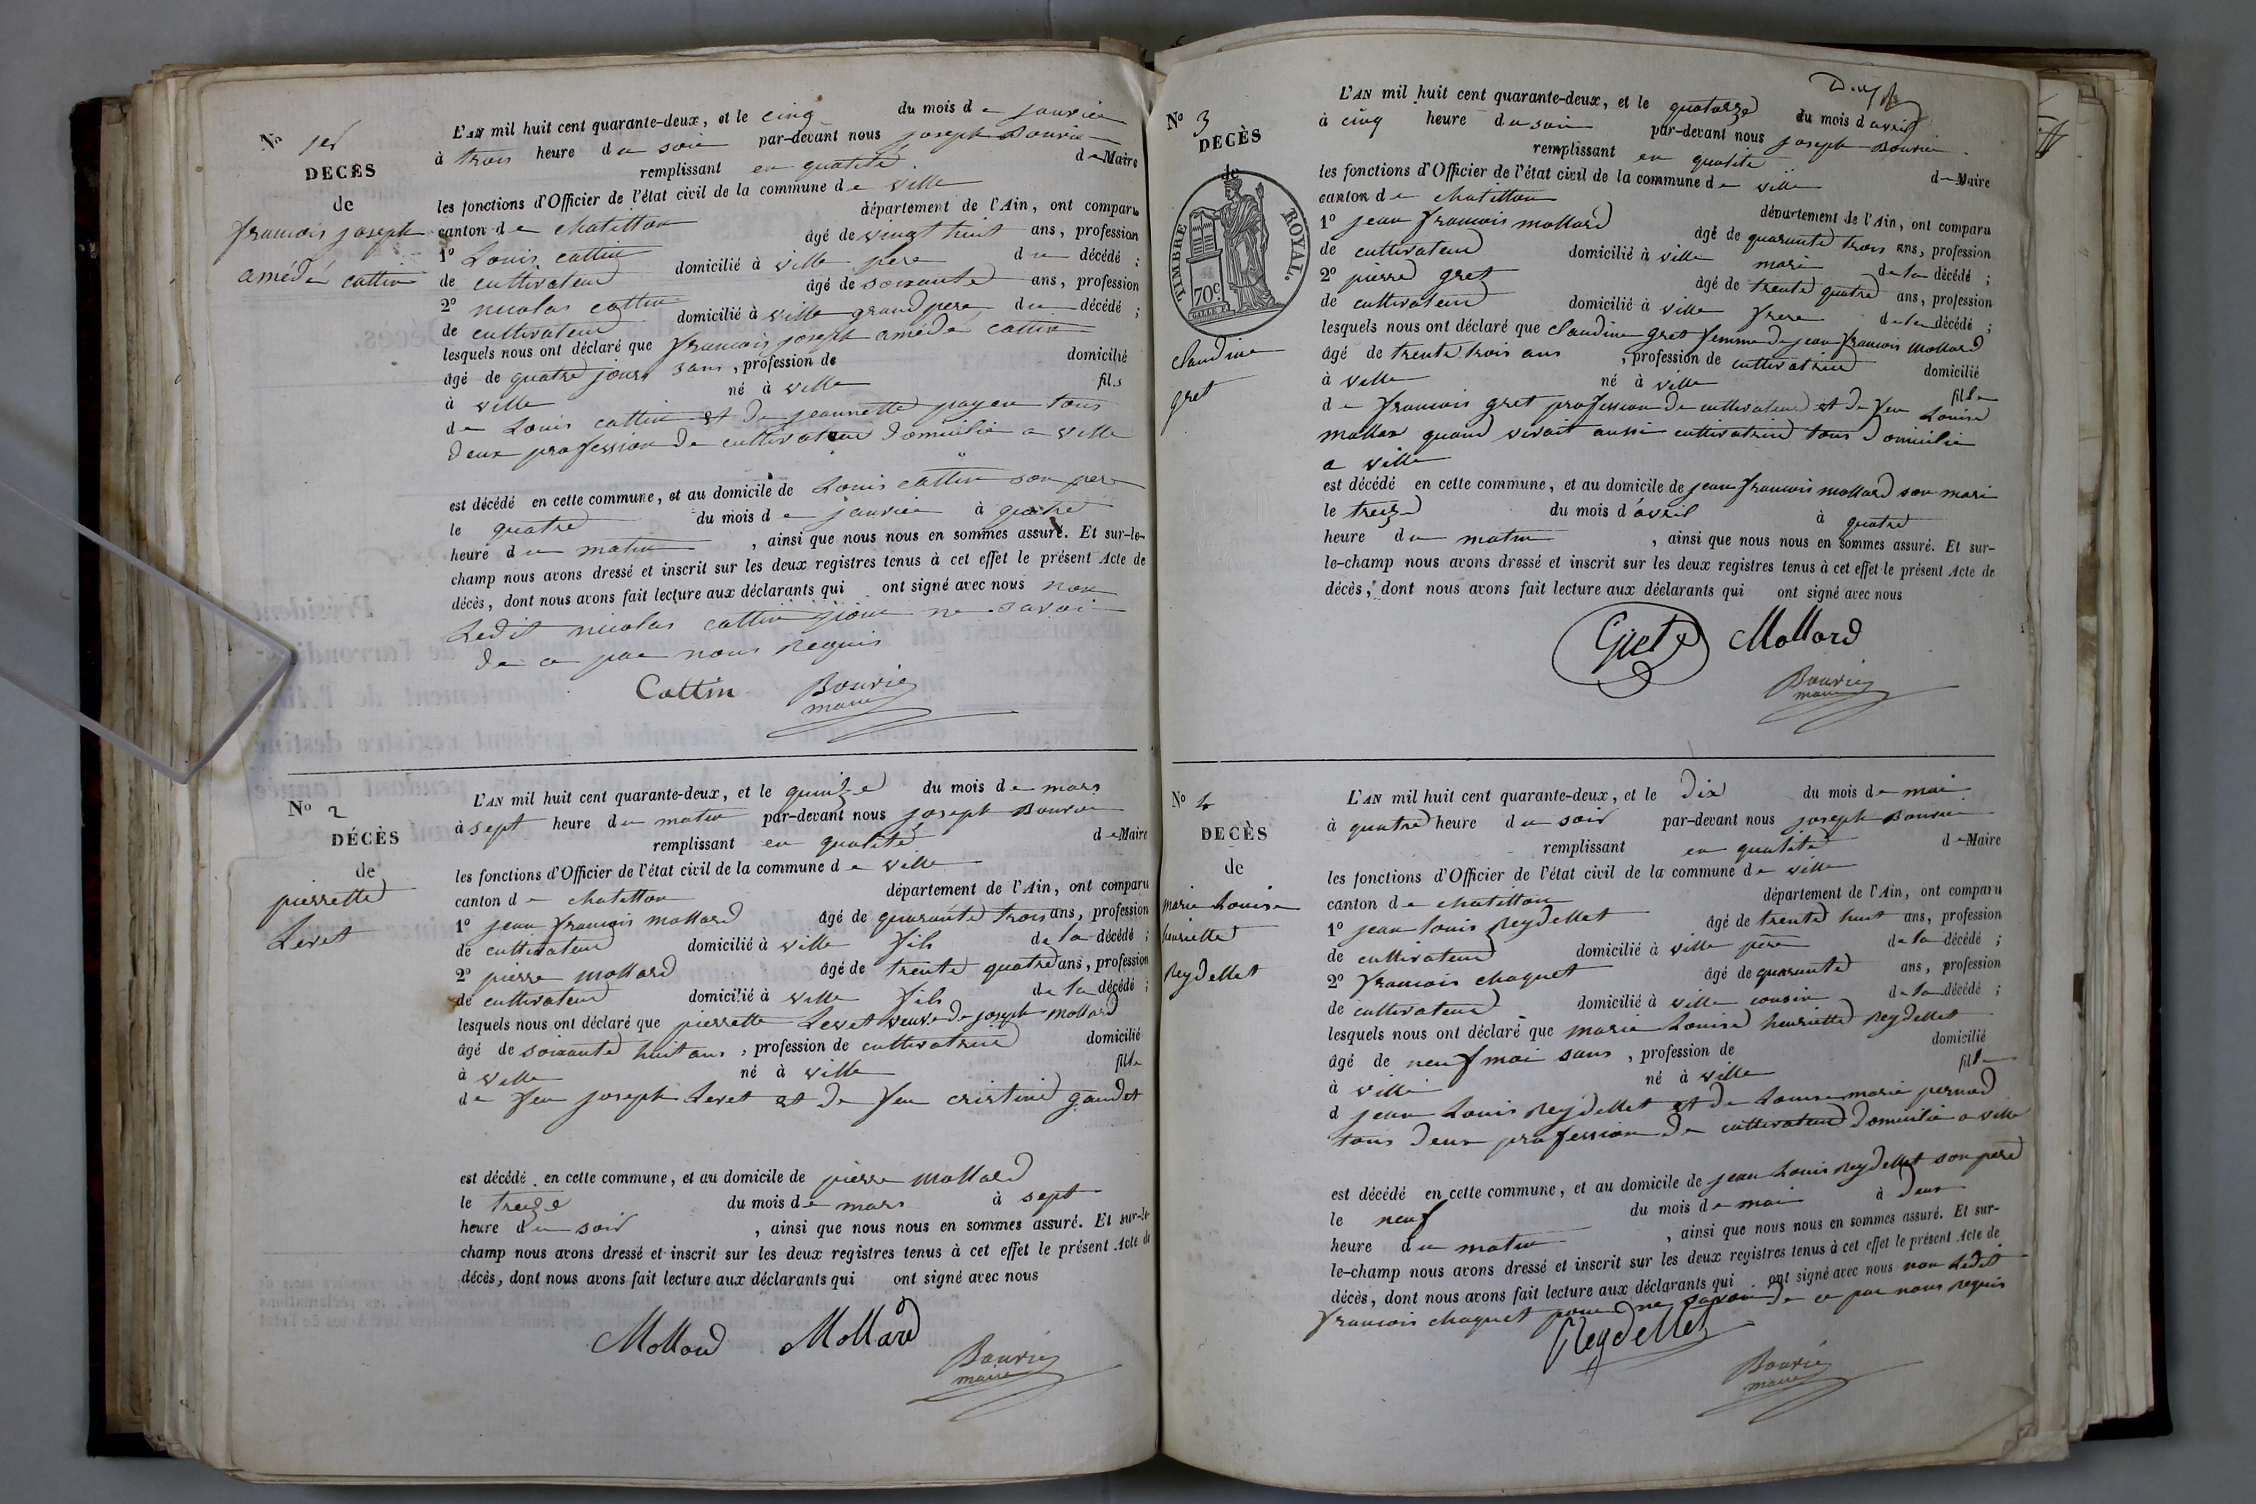 N° 1er
DECÈS
de
francois joseph
amédé cattin
L'AN mil huit cent quarante-deux, et le cinq du mois de janvier
à trois heure du soir par-devant nous joseph Bouvie
remplissant en qualité de Maire
les fonctions d'Officier de l'état civil de la commune de ville
canton de chatillon département de l'Ain, ont comparu
1° Louis cattin âgé de vingt huit ans, profession
de cultivateur domicilié à ville pere du décédé ;
2° nicolas cattin âgé de soixante ans, profession
de cultivateur domicilié à ville grand pere du décédé ;
lesquels nous ont déclaré que francois joseph amédé cattin
âgé de quatre jours sans, profession de domicilié
à ville né à ville fils
de Louis cattin et de jeannette payen tous
deux profession de cultivateur domicilié a ville
est décédé en cette commune, et au domicile de Louis cattin son pere
le quatre du mois de janvier à quatre
heure du matin, ainsi que nous nous en sommes assuré. Et sur-le-
champ nous avons dressé et inscrit sur les deux registres tenus à cet effet le présent Acte de
décès, dont nous avons fait lecture aux déclarants qui ont signé avec nous non
Ledit nicolas cattin pour ne savoir
de ce par nous requis
Cattin Bouvie
maire
N° 2
DÉCÈS
de
pierrette
Levet
L'AN mil huit cent quarante-deux, et le quinze du mois de mars
à sept heure du matin par-devant nous joseph Bouvie
remplissant en qualité de Maire
les fonctions d'Officier de l'état civil de la commune de ville
canton de chatillon département de l'Ain, ont comparu
1° jean francois mollard âgé de quarante trois ans, profession
de cultivateur domicilié à ville fils de la décédé ;
2° pierre mollard âgé de trente quatre ans, profession
de cultivateur domicilié à ville fils de la décédé ;
lesquels nous ont déclaré que pierrette Levet veuve de joseph mollard
âgé de soixante huit ans, profession de cultivatrice domicilié
à ville né à ville fille
de feu joseph Levet et de feu cristine gaudet
est décédé en cette commune, et au domicile de pierre mollard
le treize du mois de mars à sept
heure du soir, ainsi que nous nous en sommes assuré. Et sur-le-
champ nous avons dressé et inscrit sur les deux registres tenus à cet effet le présent Acte de
décès, dont nous avons fait lecture aux déclarants qui ont signé avec nous
Mollard Mollard
Bouvie
maire
N° 3
DECÈS
de
TIMBRE ROYAL.
70c.
claudine
gret
L'AN mil huit cent quarante-deux, et le quatorze du mois d avril
à cinq heure du soir par-devant nous joseph Bouvie
remplissant en qualité de Maire
les fonctions d'Officier de l'état civil de la commune de ville
canton de chatillon département de l'Ain, ont comparu
1° jean francois mollard âgé de quarante trois ans, profession
de cultivateur domicilié à ville mari de la décédé ;
2° pierre gret âgé de trente quatre ans, profession
de cultivateur domicilié à ville frere de la décédé ;
lesquels nous ont déclaré que claudine gret femme de jean francois mollard
âgé de trente trois ans, profession de cultivatrice domicilié
à ville né à ville fille
de francois gret profession de cultivateur et de feu Louise
mollar quand vivait aussi cultivatrice tous domicilie
a ville
est décédé en cette commune, et au domicile de jean francois mollard son mari
le treize du mois d avril à quatre
heure du matin, ainsi que nous nous en sommes assuré. Et sur-
le-champ nous avons dressé et inscrit sur les deux registres tenus à cet effet le présent Acte de
décès, dont nous avons fait lecture aux déclarants qui ont signé avec nous
Mollard
Bouvie
maire
N° 4
DECÈS
de
marie Louise
henriette
Reydellet
L'AN mil huit cent quarante-deux, et le dix du mois de mai
à quatre heure du soir par-devant nous joseph Bouvie
remplissant en qualité de Maire
les fonctions d'Officier de l'état civil de la commune de ville
canton de chatillon département de l'Ain, ont comparu
1° jean louis Reydellet âgé de trente huit ans, profession
de cultivateur domicilié à ville père de la décédé ;
2° francois chaquet âgé de quarante ans, profession
de cultivateur domicilié à ville cousin de la décédé ;
lesquels nous ont déclaré que marie Louise henriette Reydellet
âgé de neuf moi sans, profession de domicilié
à ville né à ville fille
d jean Louis Reydellet et de Louise marie pernod
tous deux profession de cultivateur domicilie a ville
est décédé en cette commune, et au domicile de jean Louis Reydellet son pere
le neuf du mois de mai à deux
heure du matin, ainsi que nous nous en sommes assuré. Et sur-
le-champ nous avons dressé et inscrit sur les deux registres tenus à cet effet le présent Acte de
décès, dont nous avons fait lecture aux déclarants qui ont signé avec nous non Ledit
francois chaquet pour ne savoir de ce par nous requis
Reydellet
Bouvie
maire